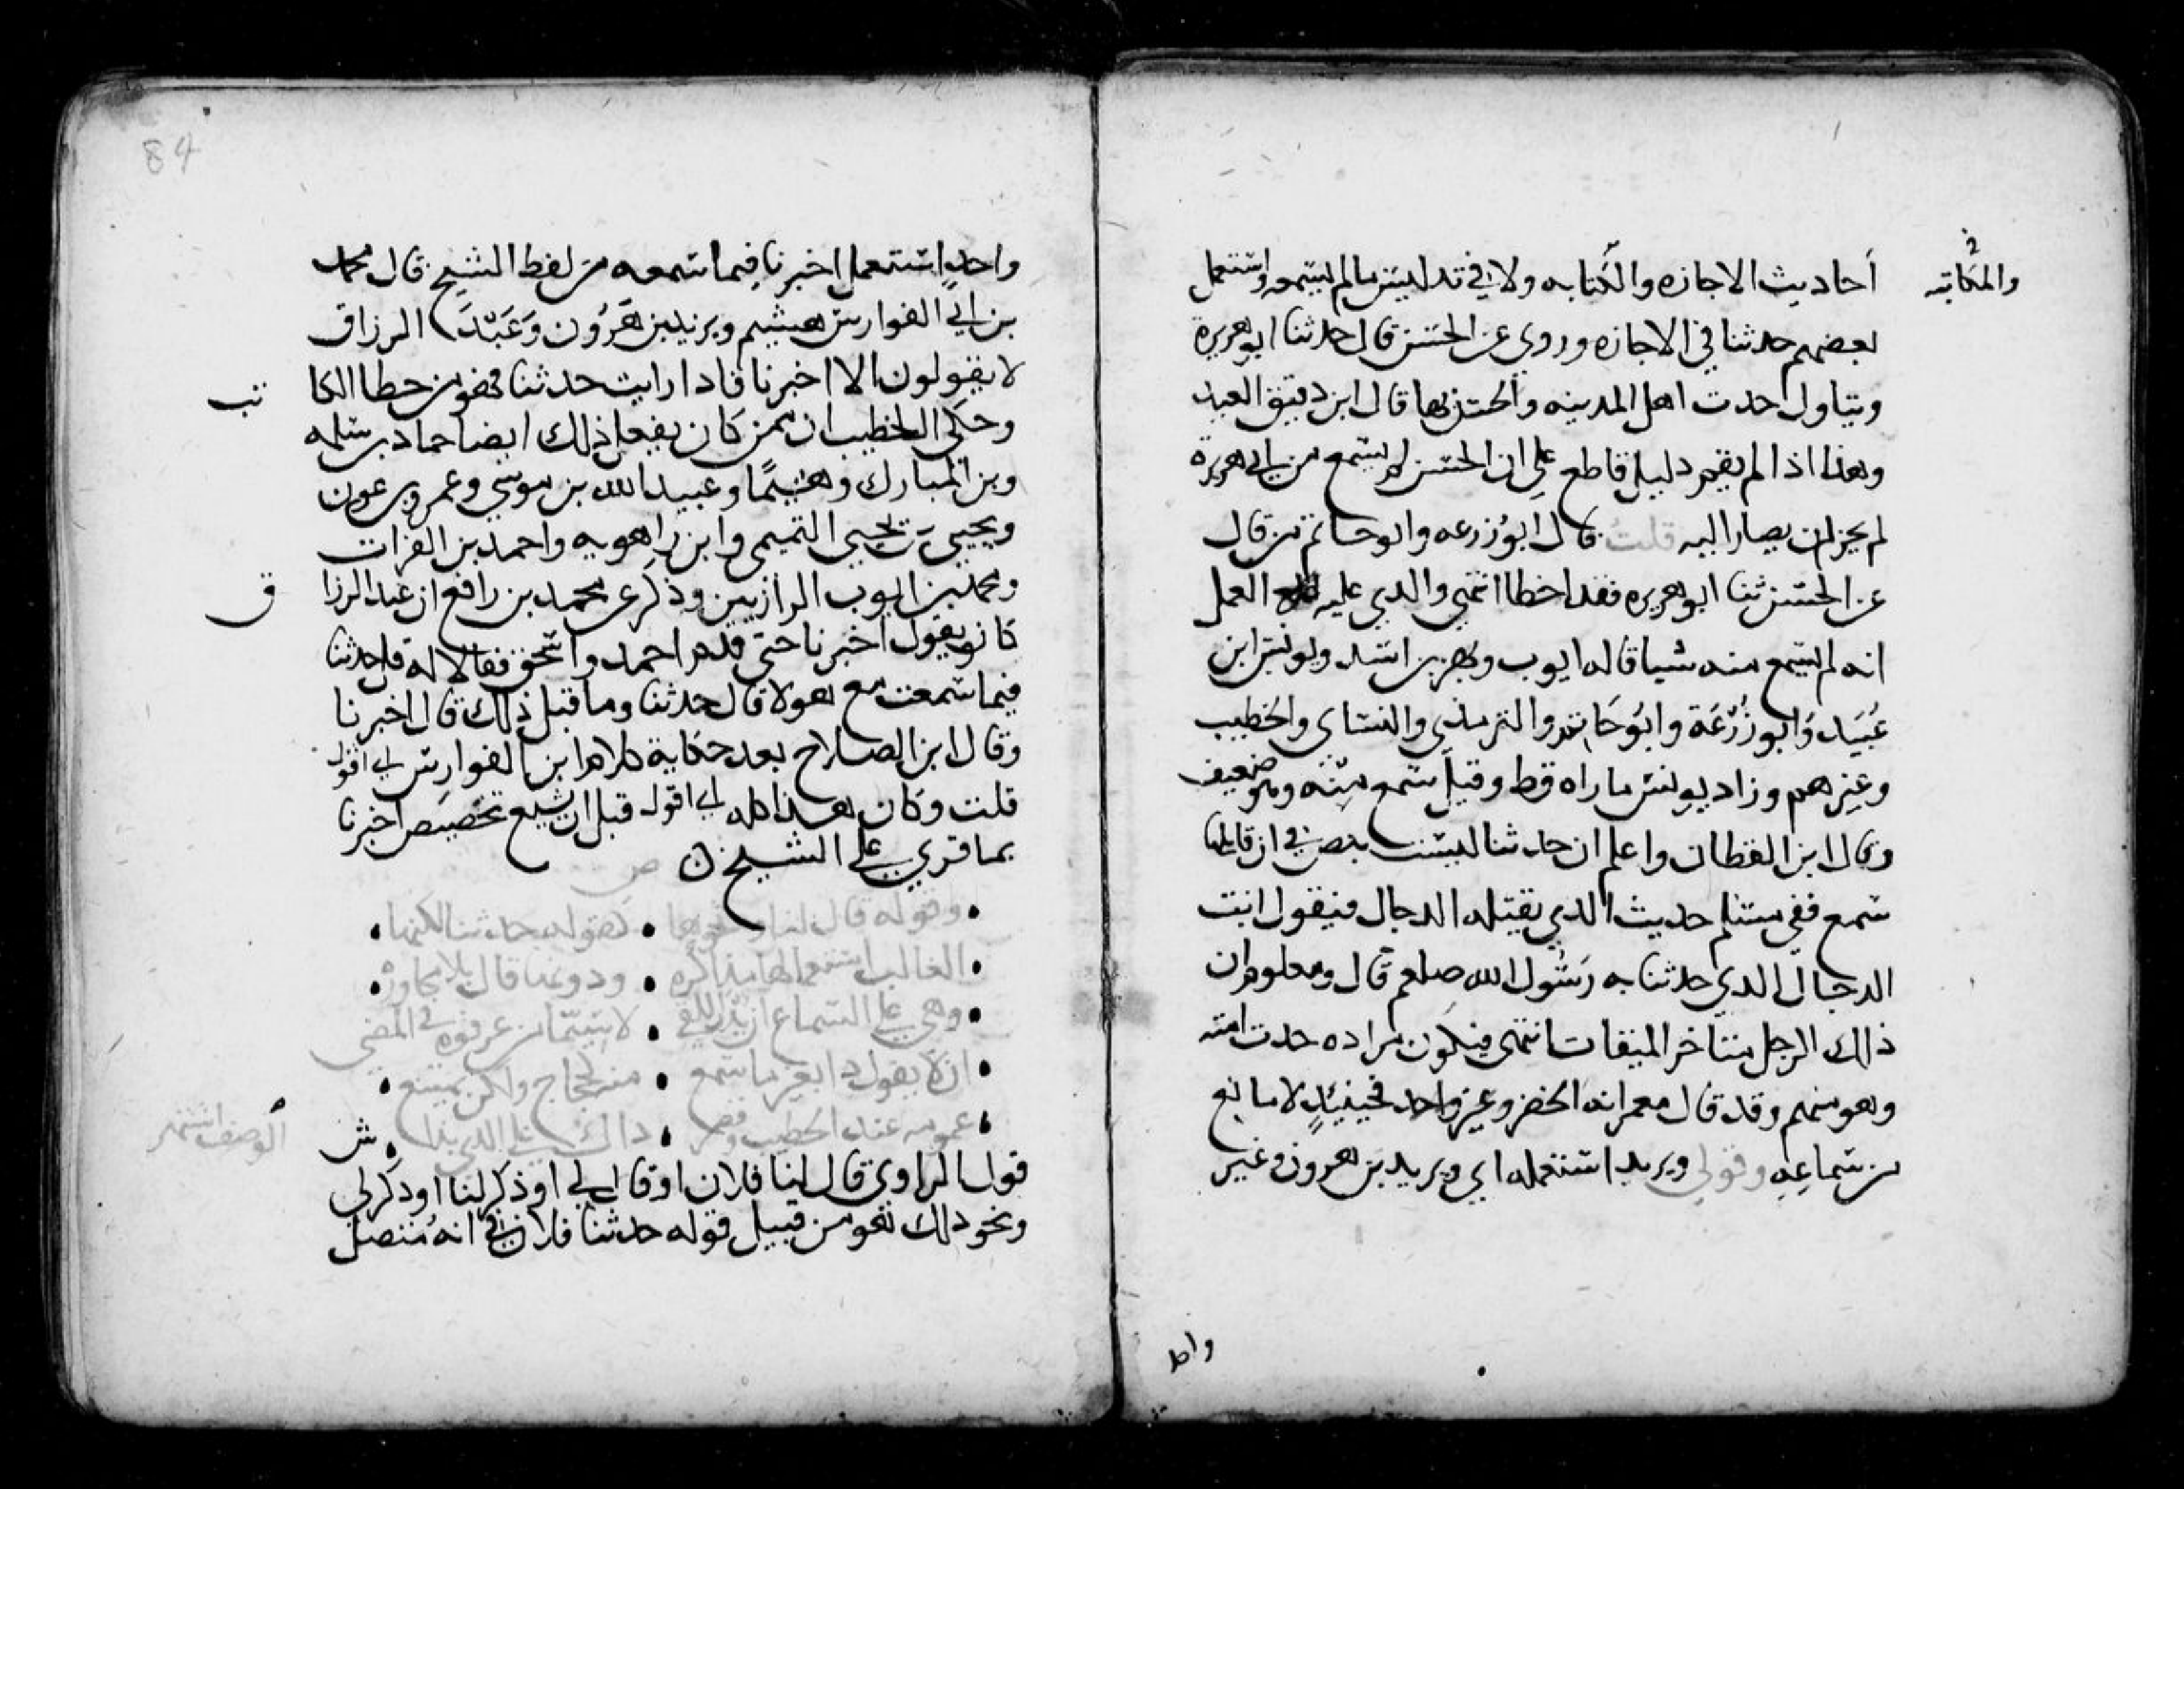 أحاديث الاجازه والكتابه ولا في تدليس مالم يسمعه واستعمل
والمكاتبه
بعضهم حدثنا في الاجازه وروي عن الحسن قال حدثنا ابو هريرة
ويتاول حدث اهل المدينه والحسن بها قال ابن دقيق العيد
وهذا اذا لم يقم دليل قاطع علي ان الحسن لم يسمع من ابي هريرة
لم يجز ان يصار اليه قلت قال ابو زرعه وابو حاتم من قال
عن الحسن ثنا ابو هريره فقد اخطا انتهي والدي عليه العمل
انه لم يسمع منه شيا قاله ايوب وبهز بن اسد ويونس ابن
عُبَيد وَابو زُرْعَة وابَو حَاتم والترمذي والنساي والخطيب
وغيرهم وزاد يونس ماراه قط وقيل سمع منه وهو ضعيف
وقال ابن القطان واعلم ان حدثنا ليست بنص في ان قايلها
سمع ففي مسلم حديث الدي يقتله الدجال فيقول انت
الدجال الدي حدثنا به رسُول الله صلعم قال ومعلوم ان
ذلك الرجل متاخر الميقات انتهى فيكون مراده حدث امته
وهو منهم وقد قال معمر انه الخضر وغير واحد فحينيدٍ لا مانع
من سماعِهِ وقولي ويريد استعمله اي ويريد بن هرون وغير
واحد
84
واحدٍ استعمل اخبرنا فيما سمعه من لفظ الشيخ قال محمد
بن ابي الفوارس هشيم ويزيد بن هَرُون وَعَبْدَ الرزاق
لا يقولون الا اخبرنا فادا رايت حدثنا فهو من خطا الكا
تب
وحكى الخطيب ان ممن كان يفعل ذلك ايضا حماد بن سلمه
وبن المبارك وهشيمًا وعبيد الله بن موسي وعمرو بن عون
ويحيي بن يحيي التميمي وابن راهويه واحمد بن الفرات
ومحمد بن ايوب الرازيين وذكر عن محمد بن رافع ان عبد الرزا
ق
كان يقول اخبرنا حتى قدم احمد واسحق فقالا له قل حدثنا
فيما سمعت مع هولا قال حدثنا وما قبل ذلك قال اخبرنا
وقال ابن الصلاح بعد حكاية كلام ابن ابي الفوارس
قلت وكان هذا كله قبل ان يشيع تخصيص اخبرنا
بما قري علي الشيخ ن
ص
• وقوله قال لنا ونحوها • كقوله حدثنا لكنها •
• الغالب استعمالها مذاكره • ودونها قال بلا مجاوره •
• وهي علي السماع ان يدر اللقي • لا سيما من عرفوه في المضي
• ان لا يقول دا بغير ما سمع • منه كحجاج ولكن يمتنع •
• عمومه عند الخطيب وقصر • ذاك علي الدي بدا
الوصف اشتهر
ش
قول الراوي قال لنا فلان او قال لي او ذكر لنا او ذكر لي
ونحو ذلك فهو من قبيل قوله حدثنا فلان في انه متصل